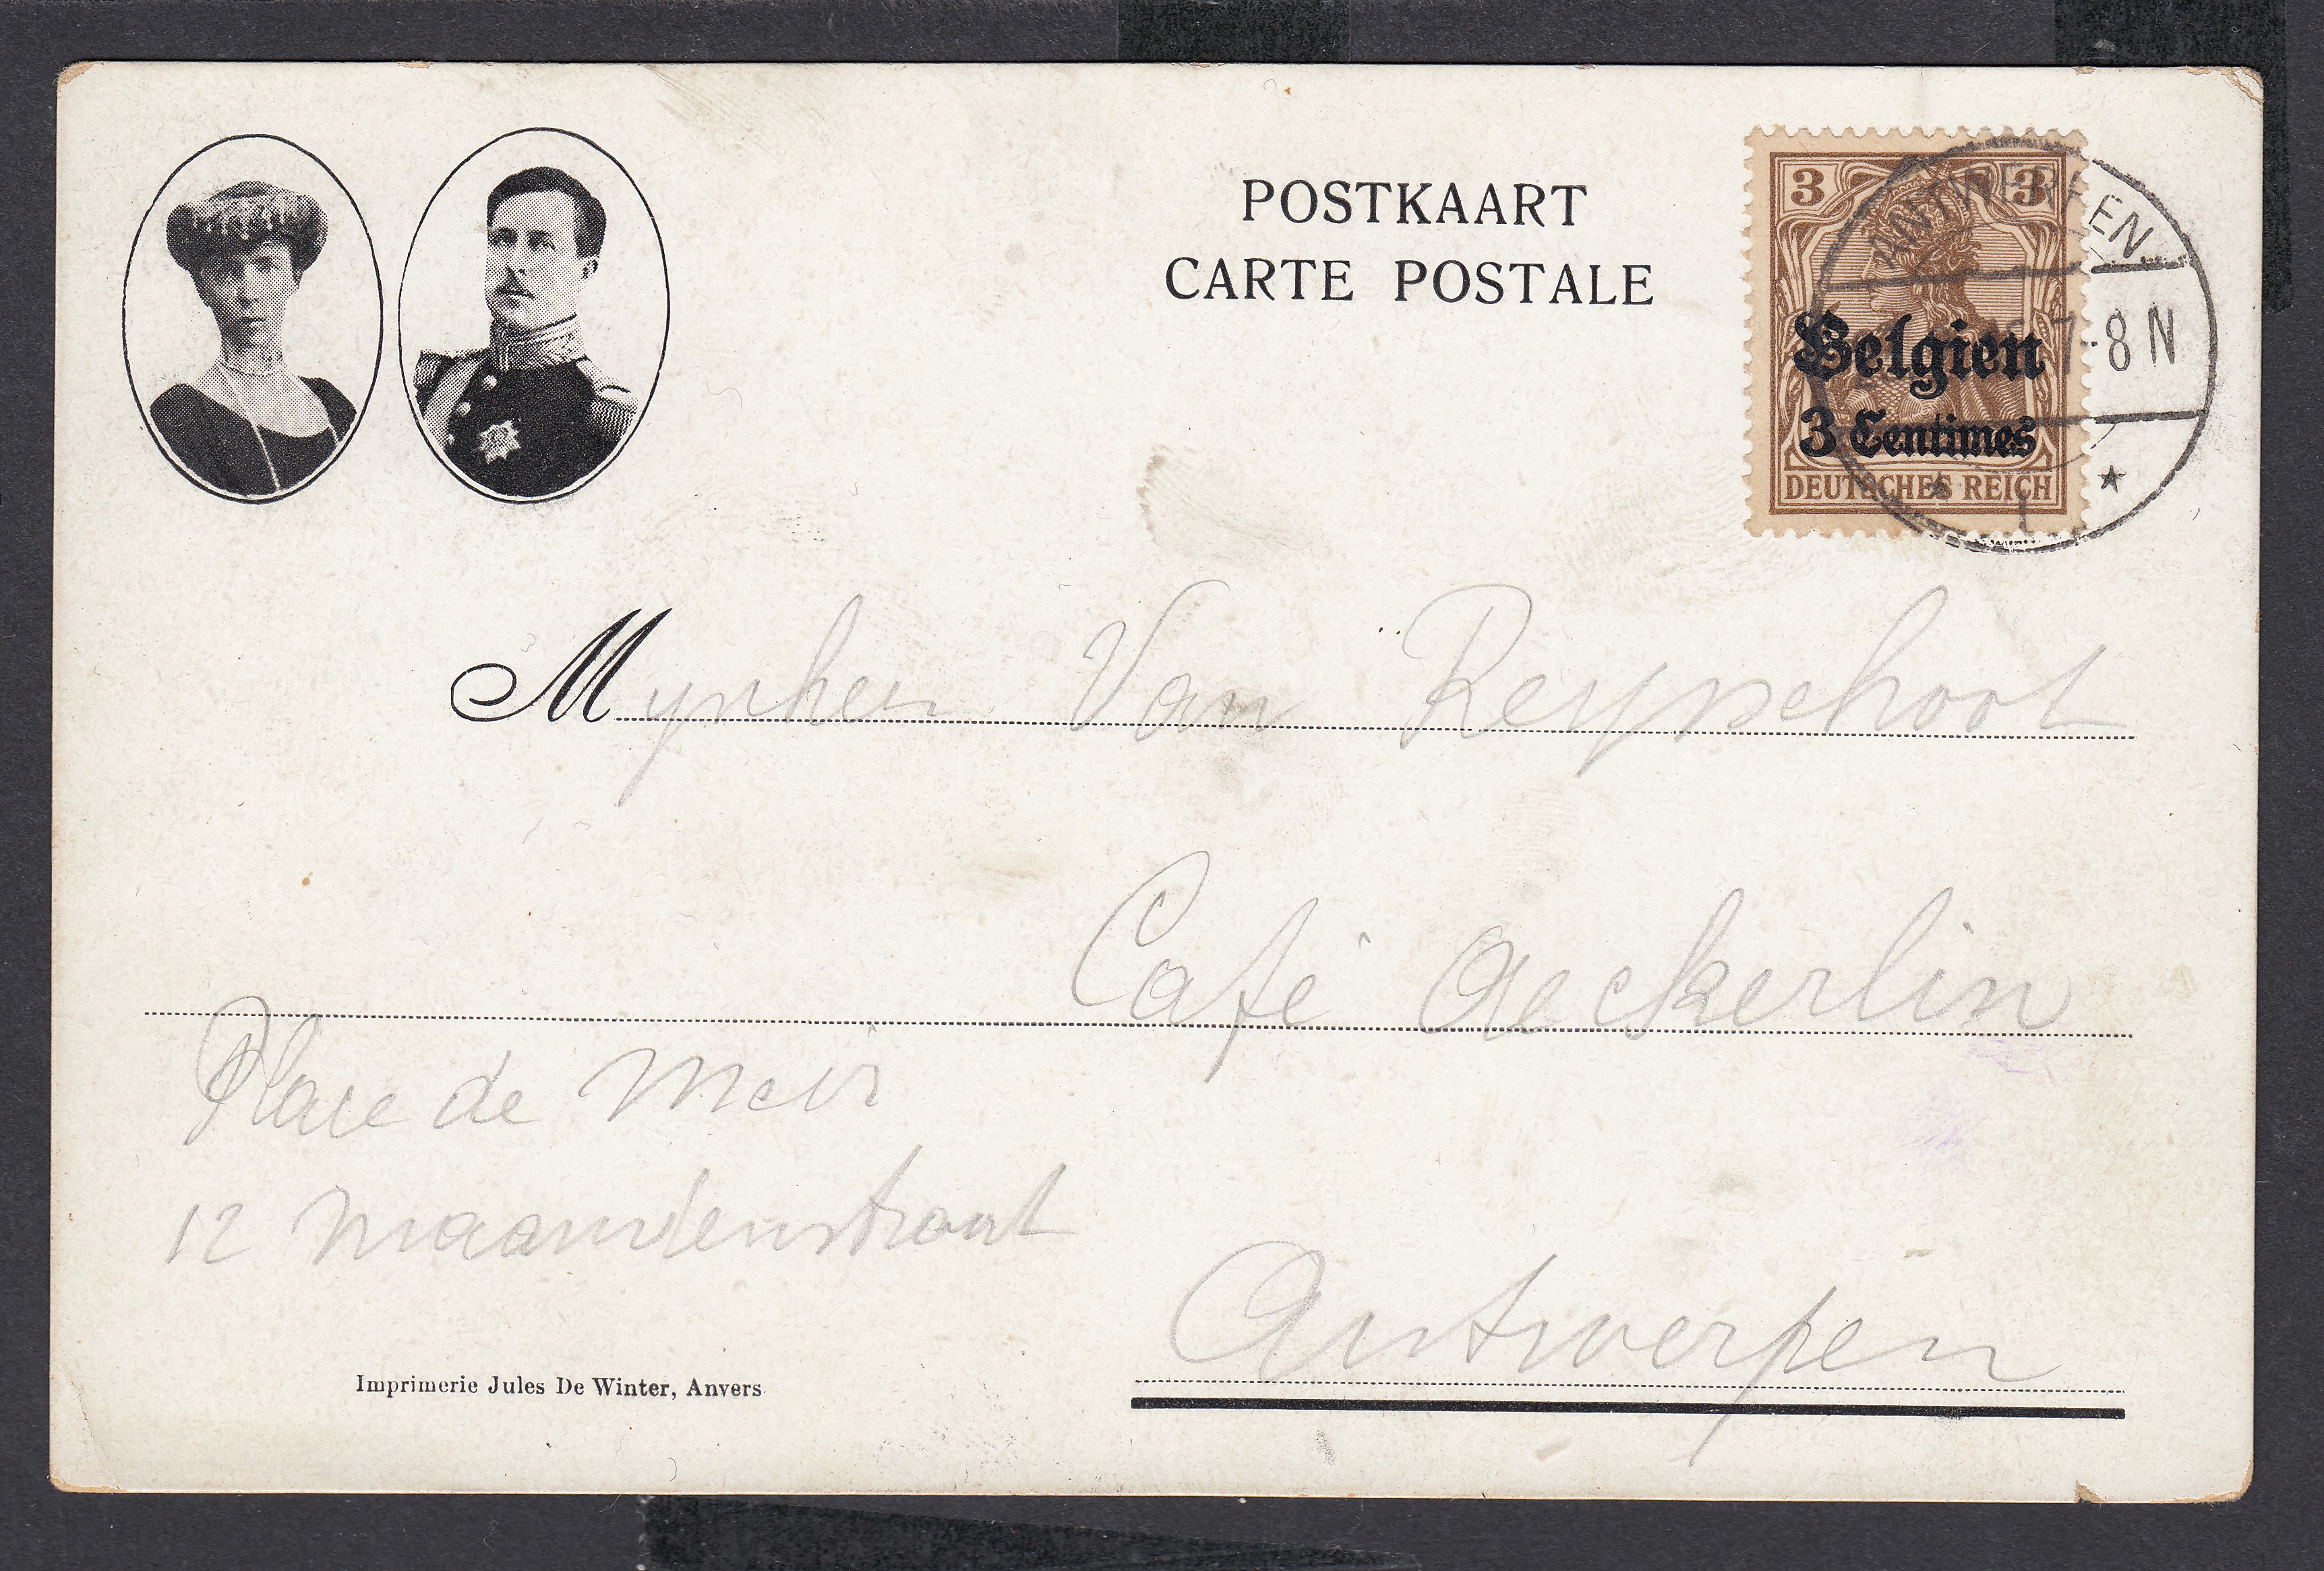 POSTKAART
CARTE POSTALE
3 3
Belgien
3 Centimes
DEUTSCHES REICH
ANTWERPEN
7-8 N
★ 1 ★
Mynheer Van Reyschoot
Café Aeckerlin
Place de Meir
12
Antwerpen
Imprimerie Jules De Winter, Anvers